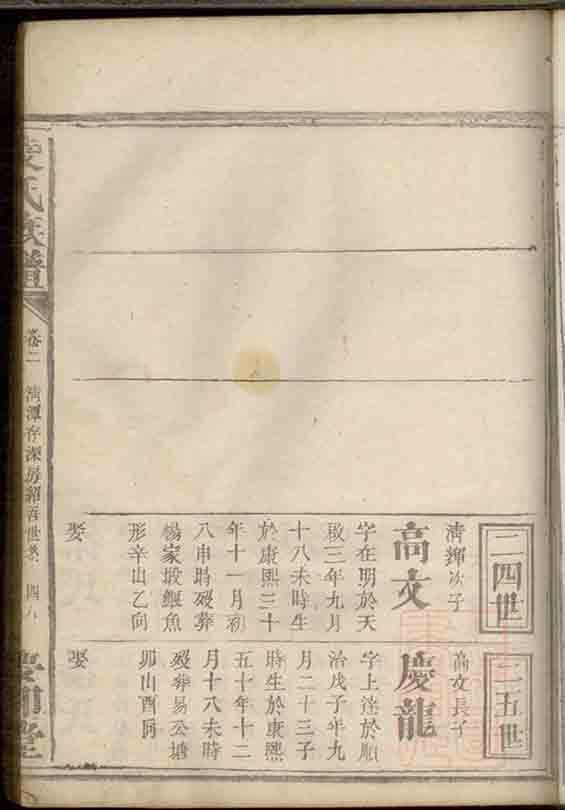 二四世
淸輝次子
高文
字在明於天
啟三年九月
十八未時生
於康熙三十
年十一月初
八申時歿葬
楊家塅鰕魚
形辛山乙向
娶
二五世
高文長子
慶龍
字上達於順
治戊子年九
月二十三子
時生於康熙
五十年十二
月十八未時
歿葬易公塘
卯山酉向
娶
氏族譜
卷二
淸潭存深房紹吾世系
四八